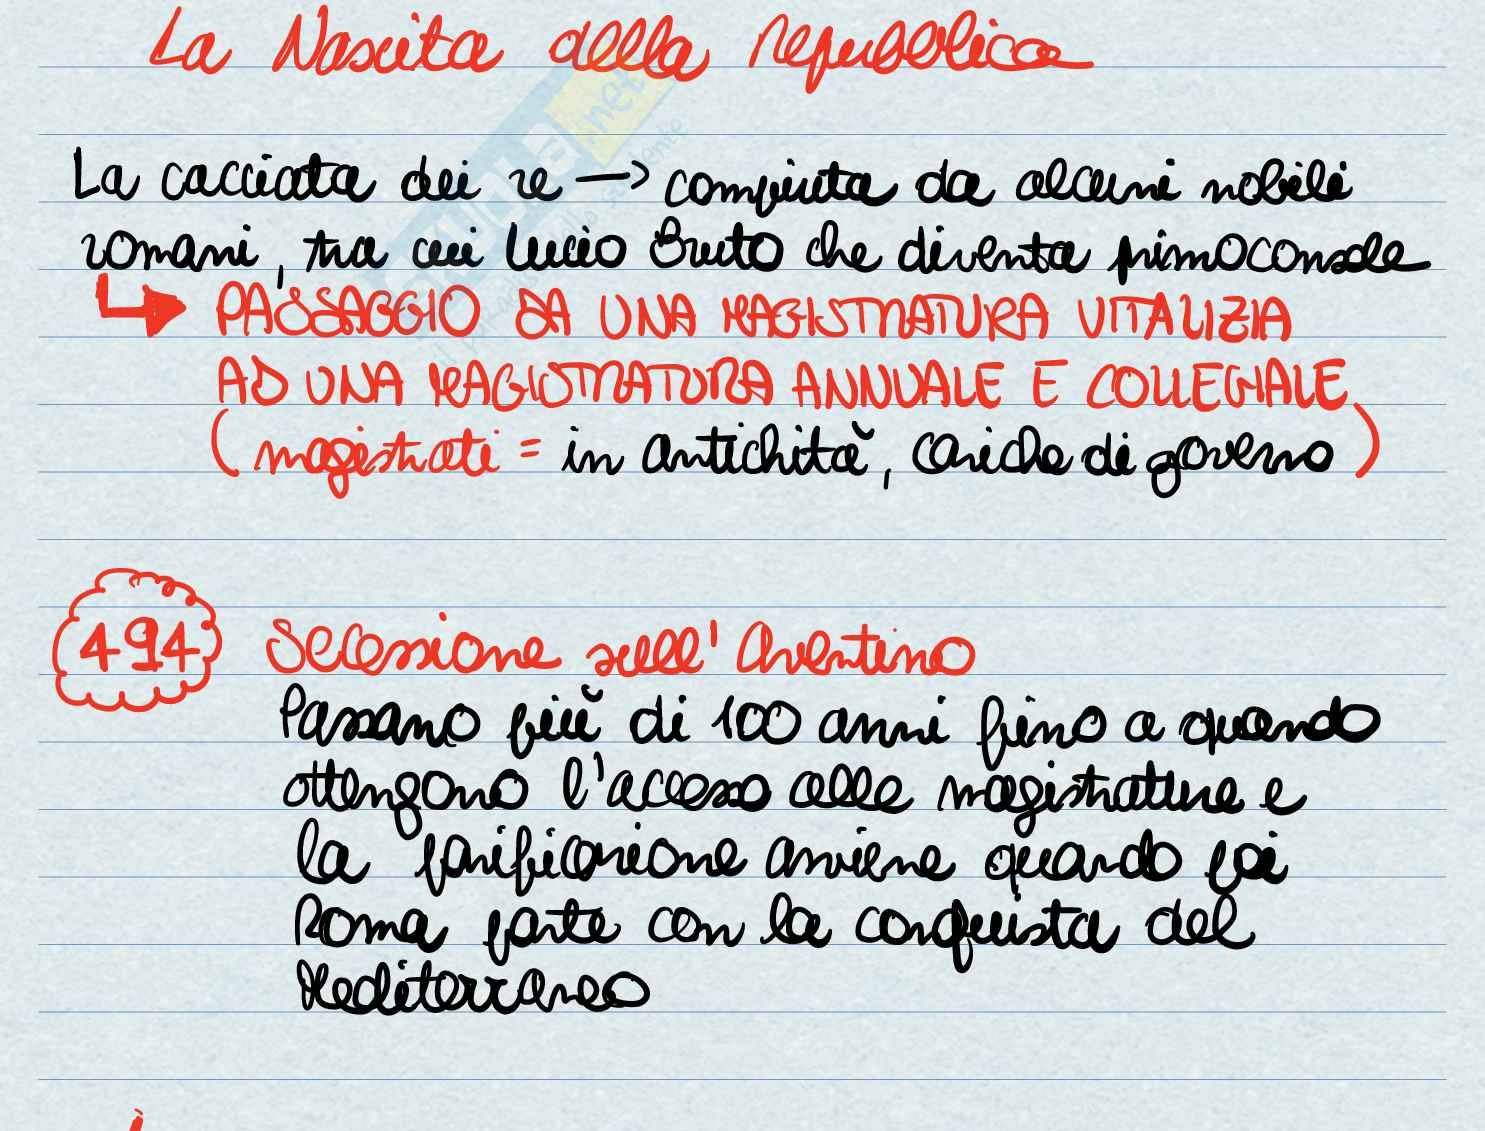 La Nascita della repubblica
La cacciata dei re → compiuta da alcuni nobili
romani, tra cui Lucio Bruto che diventa primo console
PASSAGGIO DA UNA MAGISTRATURA VITALIZIA
AD UNA MAGISTRATURA ANNUALE E COLLEGIALE
(magistrati = in antichità, cariche di governo)
494 Secessione sull'Aventino
Passano più di 100 anni fino a quando
ottengono l'accesso alle magistrature e
la parificazione avviene quando poi
Roma parte con la conquista del
Mediterraneo